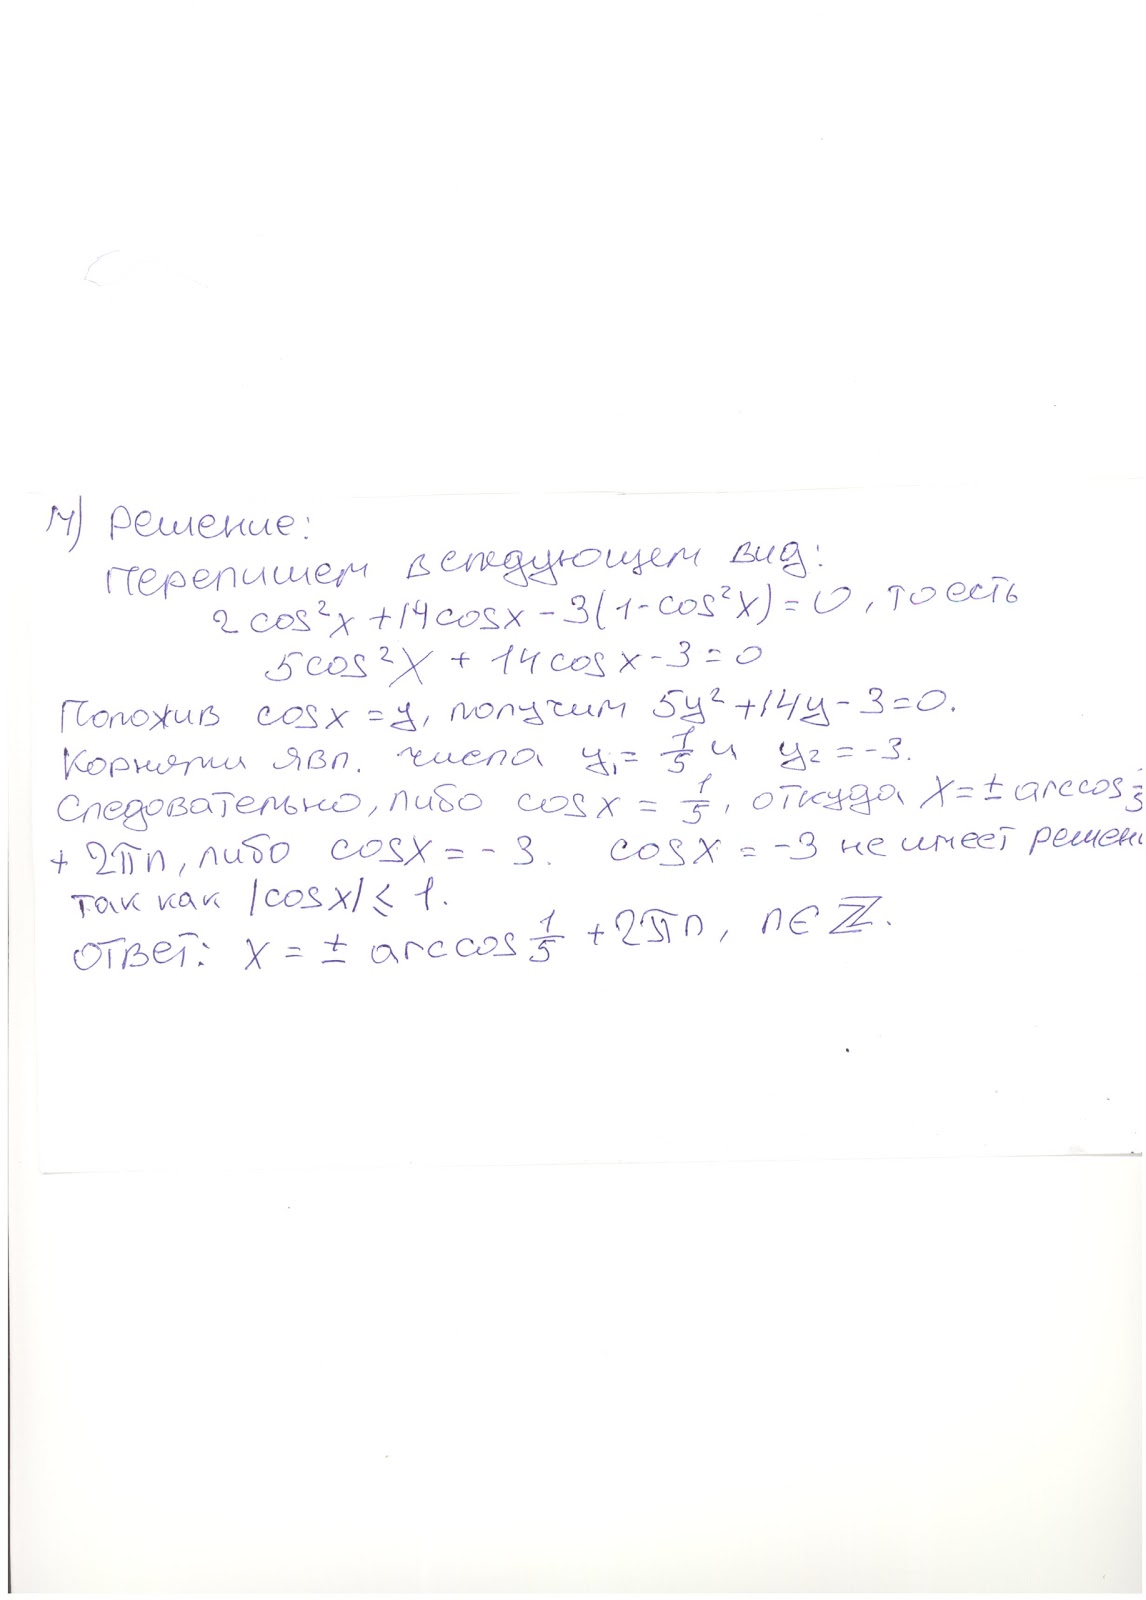 14) Решение:
Перепишем в следующем вид:
2 cos²x + 14 cosx - 3(1 - cos²x) = 0, то есть
5cos²x + 14 cos x - 3 = 0
Положив cosx = y, получим 5y² + 14y - 3 = 0.
Корнями явл. числа y₁ = 1/5 и y₂ = -3.
Следовательно, либо cos x = 1/5, откуда x = ± arccos
+ 2πn, либо cosx = - 3. cosx = -3 не имеет решени
так как |cosx| ⩽ 1.
Ответ: x = ± arccos 1/5 + 2πn, n∈ℤ.